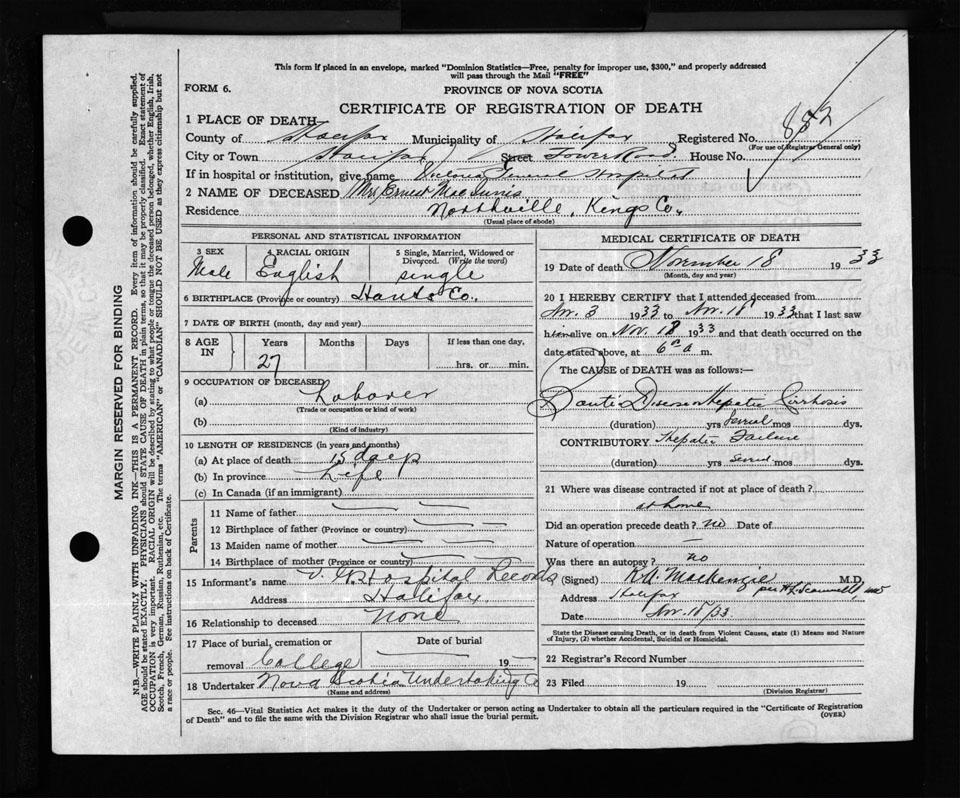 This form if placed in an envelope, marked "Dominion Statistics—Free, penalty for improper use, $300," and properly addressed
will pass through the Mail "FREE"
FORM 6.
PROVINCE OF NOVA SCOTIA
CERTIFICATE OF REGISTRATION OF DEATH
1 PLACE OF DEATH
County of Halifax Municipality of Halifax Registered No. 882
(For use of Registrar General only)
City or Town Halifax Street Tower Road House No.
If in hospital or institution, give name Victoria General Hospital
2 NAME OF DECEASED Ernest MacInnis
Residence Northville, Kings Co.,
(Usual place of abode)
PERSONAL AND STATISTICAL INFORMATION
3 SEX Male
4 RACIAL ORIGIN English
5 Single, Married, Widowed or Divorced. (Write the word) single
6 BIRTHPLACE (Province or country) Hants Co.,
7 DATE OF BIRTH (month, day and year)
8 AGE IN
Years Months Days If less than one day,
27 hrs. or min.
9 OCCUPATION OF DECEASED
(a) Laborer
(Trade or occupation or kind of work)
(b)
(Kind of industry)
10 LENGTH OF RESIDENCE (in years and months)
(a) At place of death 15 days
(b) In province Life
(c) In Canada (if an immigrant)
Parents
11 Name of father
12 Birthplace of father (Province or country)
13 Maiden name of mother
14 Birthplace of mother (Province or country)
15 Informant's name V. G. Hospital Records
Address Halifax
16 Relationship to deceased None
17 Place of burial, cremation or removal College
Date of burial
19
18 Undertaker Nova Scotia Undertaking Co
(Name and address)
MEDICAL CERTIFICATE OF DEATH
19 Date of death November 18 1933
(Month, day and year)
20 I HEREBY CERTIFY that I attended deceased from
Nov. 3 1933 to Nov. 18 1933 that I last saw
him alive on Nov. 18 1933 and that death occurred on the
date stated above, at 6 a m.
The CAUSE of DEATH was as follows:—
Banti's Disease Hepatic Cirrhosis
(duration) yrs several mos dys.
CONTRIBUTORY Hepatic Failure
(duration) yrs several mos dys.
21 Where was disease contracted if not at place of death?
at home
Did an operation precede death? no Date of
Nature of operation —
Was there an autopsy? no
(Signed) MacKenzie M.D.
Address Halifax
Date Nov. 18/33
State the Disease causing Death, or in death from Violent Causes, state (1) Means and Nature
of Injury, (2) whether Accidental, Suicidal or Homicidal.
22 Registrar's Record Number
23 Filed 19
(Division Registrar)
Sec. 46—Vital Statistics Act makes it the duty of the Undertaker or person acting as Undertaker to obtain all the particulars required in the "Certificate of Registration
of Death" and to file the same with the Division Registrar who shall issue the burial permit.
(OVER)
MARGIN RESERVED FOR BINDING
N.B.—WRITE PLAINLY WITH UNFADING INK—THIS IS A PERMANENT RECORD. Every item of information should be carefully supplied.
AGE should be stated EXACTLY. PHYSICIANS should STATE CAUSE OF DEATH in plain terms, so that it may be properly classified. Exact statement of
OCCUPATION is very important. RACIAL ORIGIN will be described by stating to what people or tongue the deceased person belonged, whether English, Irish,
Scotch, French, German, Russian, Ruthenian, etc. The terms "AMERICAN" or "CANADIAN" SHOULD NOT BE USED as they express citizenship but not
a race or people. See instructions on back of Certificate.